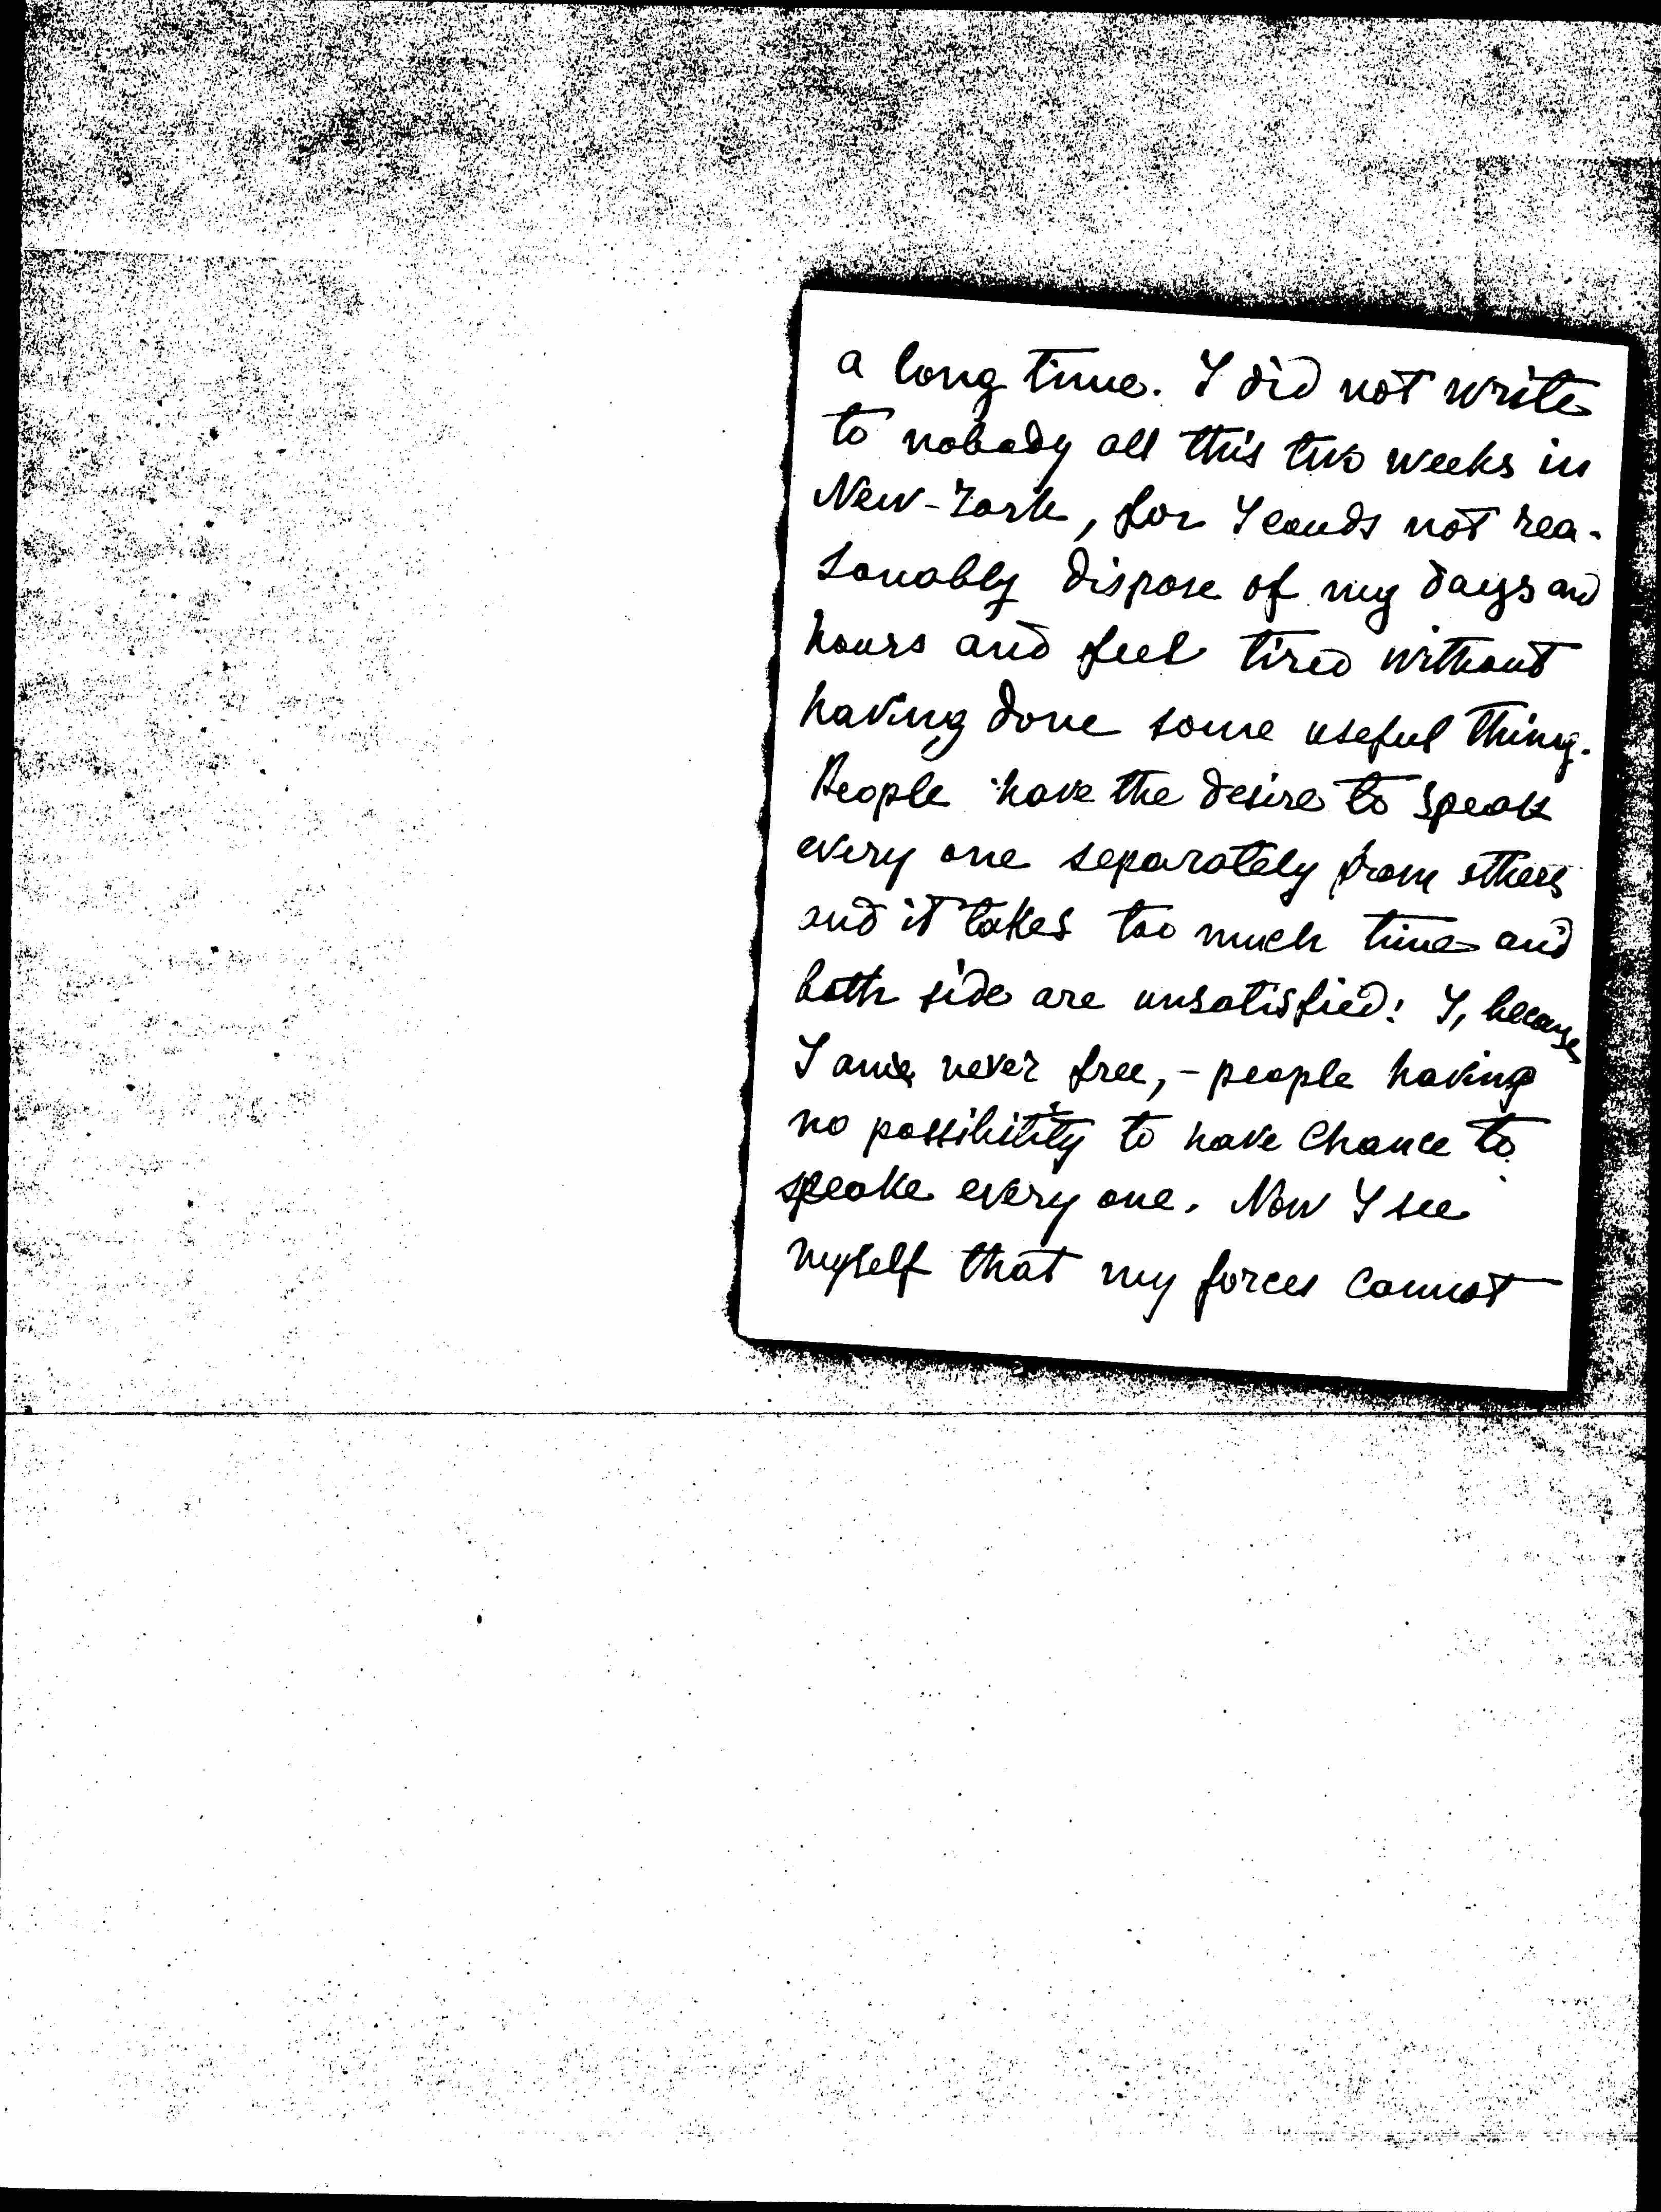 a long time. I did not write
to nobody all this two weeks in
New-York, for I could not rea-
sonably dispose of my days and
hours and feel tired without
having done some useful thing.
People have the desire to speak
every one separately from others
and it takes too much time and
both side are unsatisfied: I, because
I am never free, - people having
no possibility to have chance to
speake every one. Now I see
myself that my forces cannot